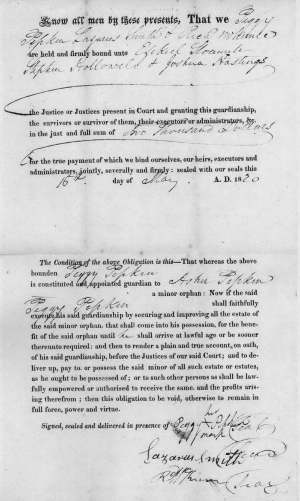 Know all men by these presents, That we Peggy
Pipkin Lazarus Smith &
are held and firmly bound unto
Stephen Hollowell & Joshua Hastings
the Justice or Justices present in Court and granting this guardianship,
the survivors or survivor of them, their executors or administrators, &c.
in the just and full sum of Two Thousand Dollars
for the true payment of which we bind ourselves, our heirs, executors and
administrators, jointly, severally and firmly: sealed with our seals this
16th day of May A. D. 1820
The Condition of the above Obligation is this—That whereas the above
bounden Peggy Pipkin
is constituted and appointed guardian to Asher Pipkin
a minor orphan: Now if the said
Peggy Pipkin shall faithfully
execute his said guardianship by securing and improving all the estate of
the said minor orphan that shall come into his possession, for the bene-
fit of the said orphan until he shall arrive at lawful age or be sooner
thereunto required: and then to render a plain and true account, on oath,
of his said guardianship, before the Justices of our said Court; and to de-
liver up, pay to, or possess the said minor of all such estate or estates,
as he ought to be possessed of; or to such other persons as shall be law-
fully empowered or authorised to receive the same, and the profits aris-
ing therefrom; then this obligation to be void, otherwise to remain in
full force, power and virtue.
Signed, sealed and delivered in presence of Peggy Pipkin
mark
Lazarus Smith